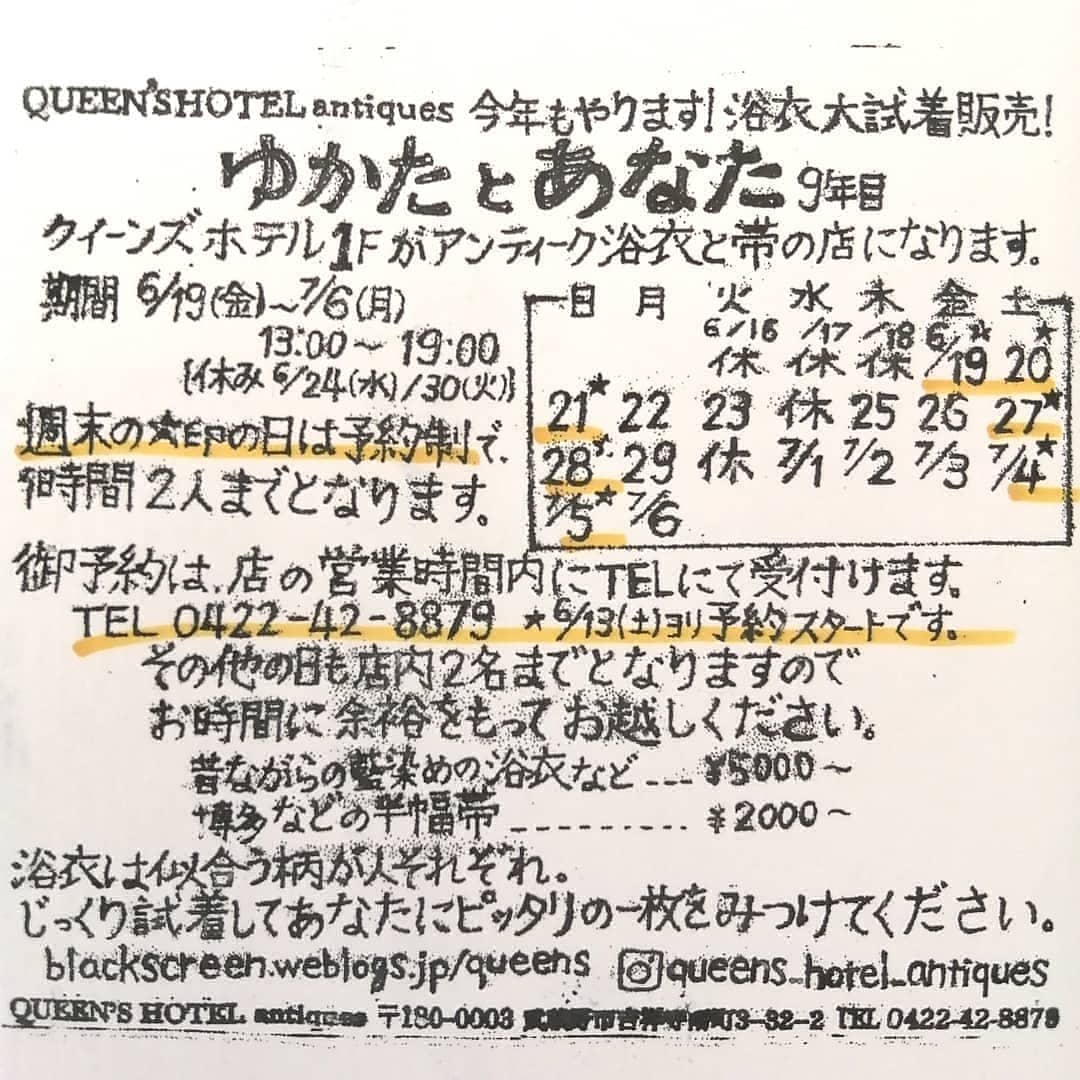 QUEEN'S HOTEL antiques 今年もやります!浴衣大試着販売!
ゆかたとあなた 9年目
クイーンズホテル1Fがアンティーク浴衣と帯の店になります。
期間 6/19(金)~7/6(月)
13:00~19:00
{休み 6/24(水)/30(火)}
週末の★印の日は予約制で、
1時間2人までとなります。
日 月 火 水 木 金 土
6/16 /17 /18 6/19★ 20★
休 休 休
21★ 22 23 休 25 26 27★
28★ 29 休 7/1 7/2 7/3 7/4★
7/5★ 7/6
御予約は、店の営業時間内にTELにて受付けます。
TEL 0422-42-8879 ★6/13(土)ヨリ予約スタートです。
その他の日も店内2名までとなりますので
お時間に余裕をもってお越しください。
昔ながらの藍染めの浴衣など---¥5000~
博多などの半幅帯----------¥2000~
浴衣は似合う柄が人それぞれ。
じっくり試着してあなたにピッタリの一枚をみつけてください。
blackscreen.weblogs.jp/queens queens_hotel_antiques
QUEEN'S HOTEL antiques 〒180-0003 武蔵野市吉祥寺南町3-32-2 TEL 0422-42-8879